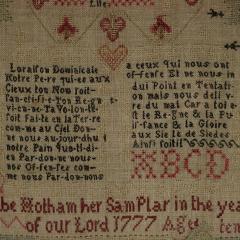 Life
Loraison Dominicale
Notre Pere qui es aux
Cieux ton Nom soit
Sanctifie ton Regne
vienne Ta Volonte
soit faite en la Terre
comme au Ciel Don
nous au jourd hui
notre Pain Quotidi
en Pardonne nous
nos Offenses com
me nous Pardonnons
a ceux qui nous ont
offense Et ne nous in
dui Point en Tentati
on mais nous deliv
re du mal Car a toi
est le Regne & la Pu
issance & la Gloire
aux Siecle de Siecles
Ainsi soit il
ABCD
be Hotham her SamPlar in the yea
of our Lord 1777 Aged ten